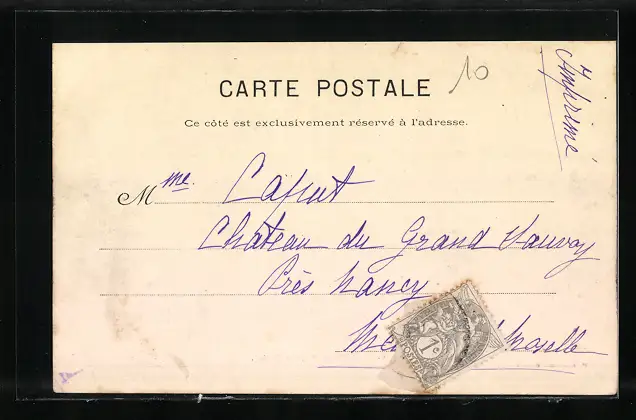 10
Imprimé
CARTE POSTALE
Ce côté est exclusivement réservé à l'adresse.
Mme. Caput
Château du Grand Sauvoy
Près Nancy
Moselle
1c